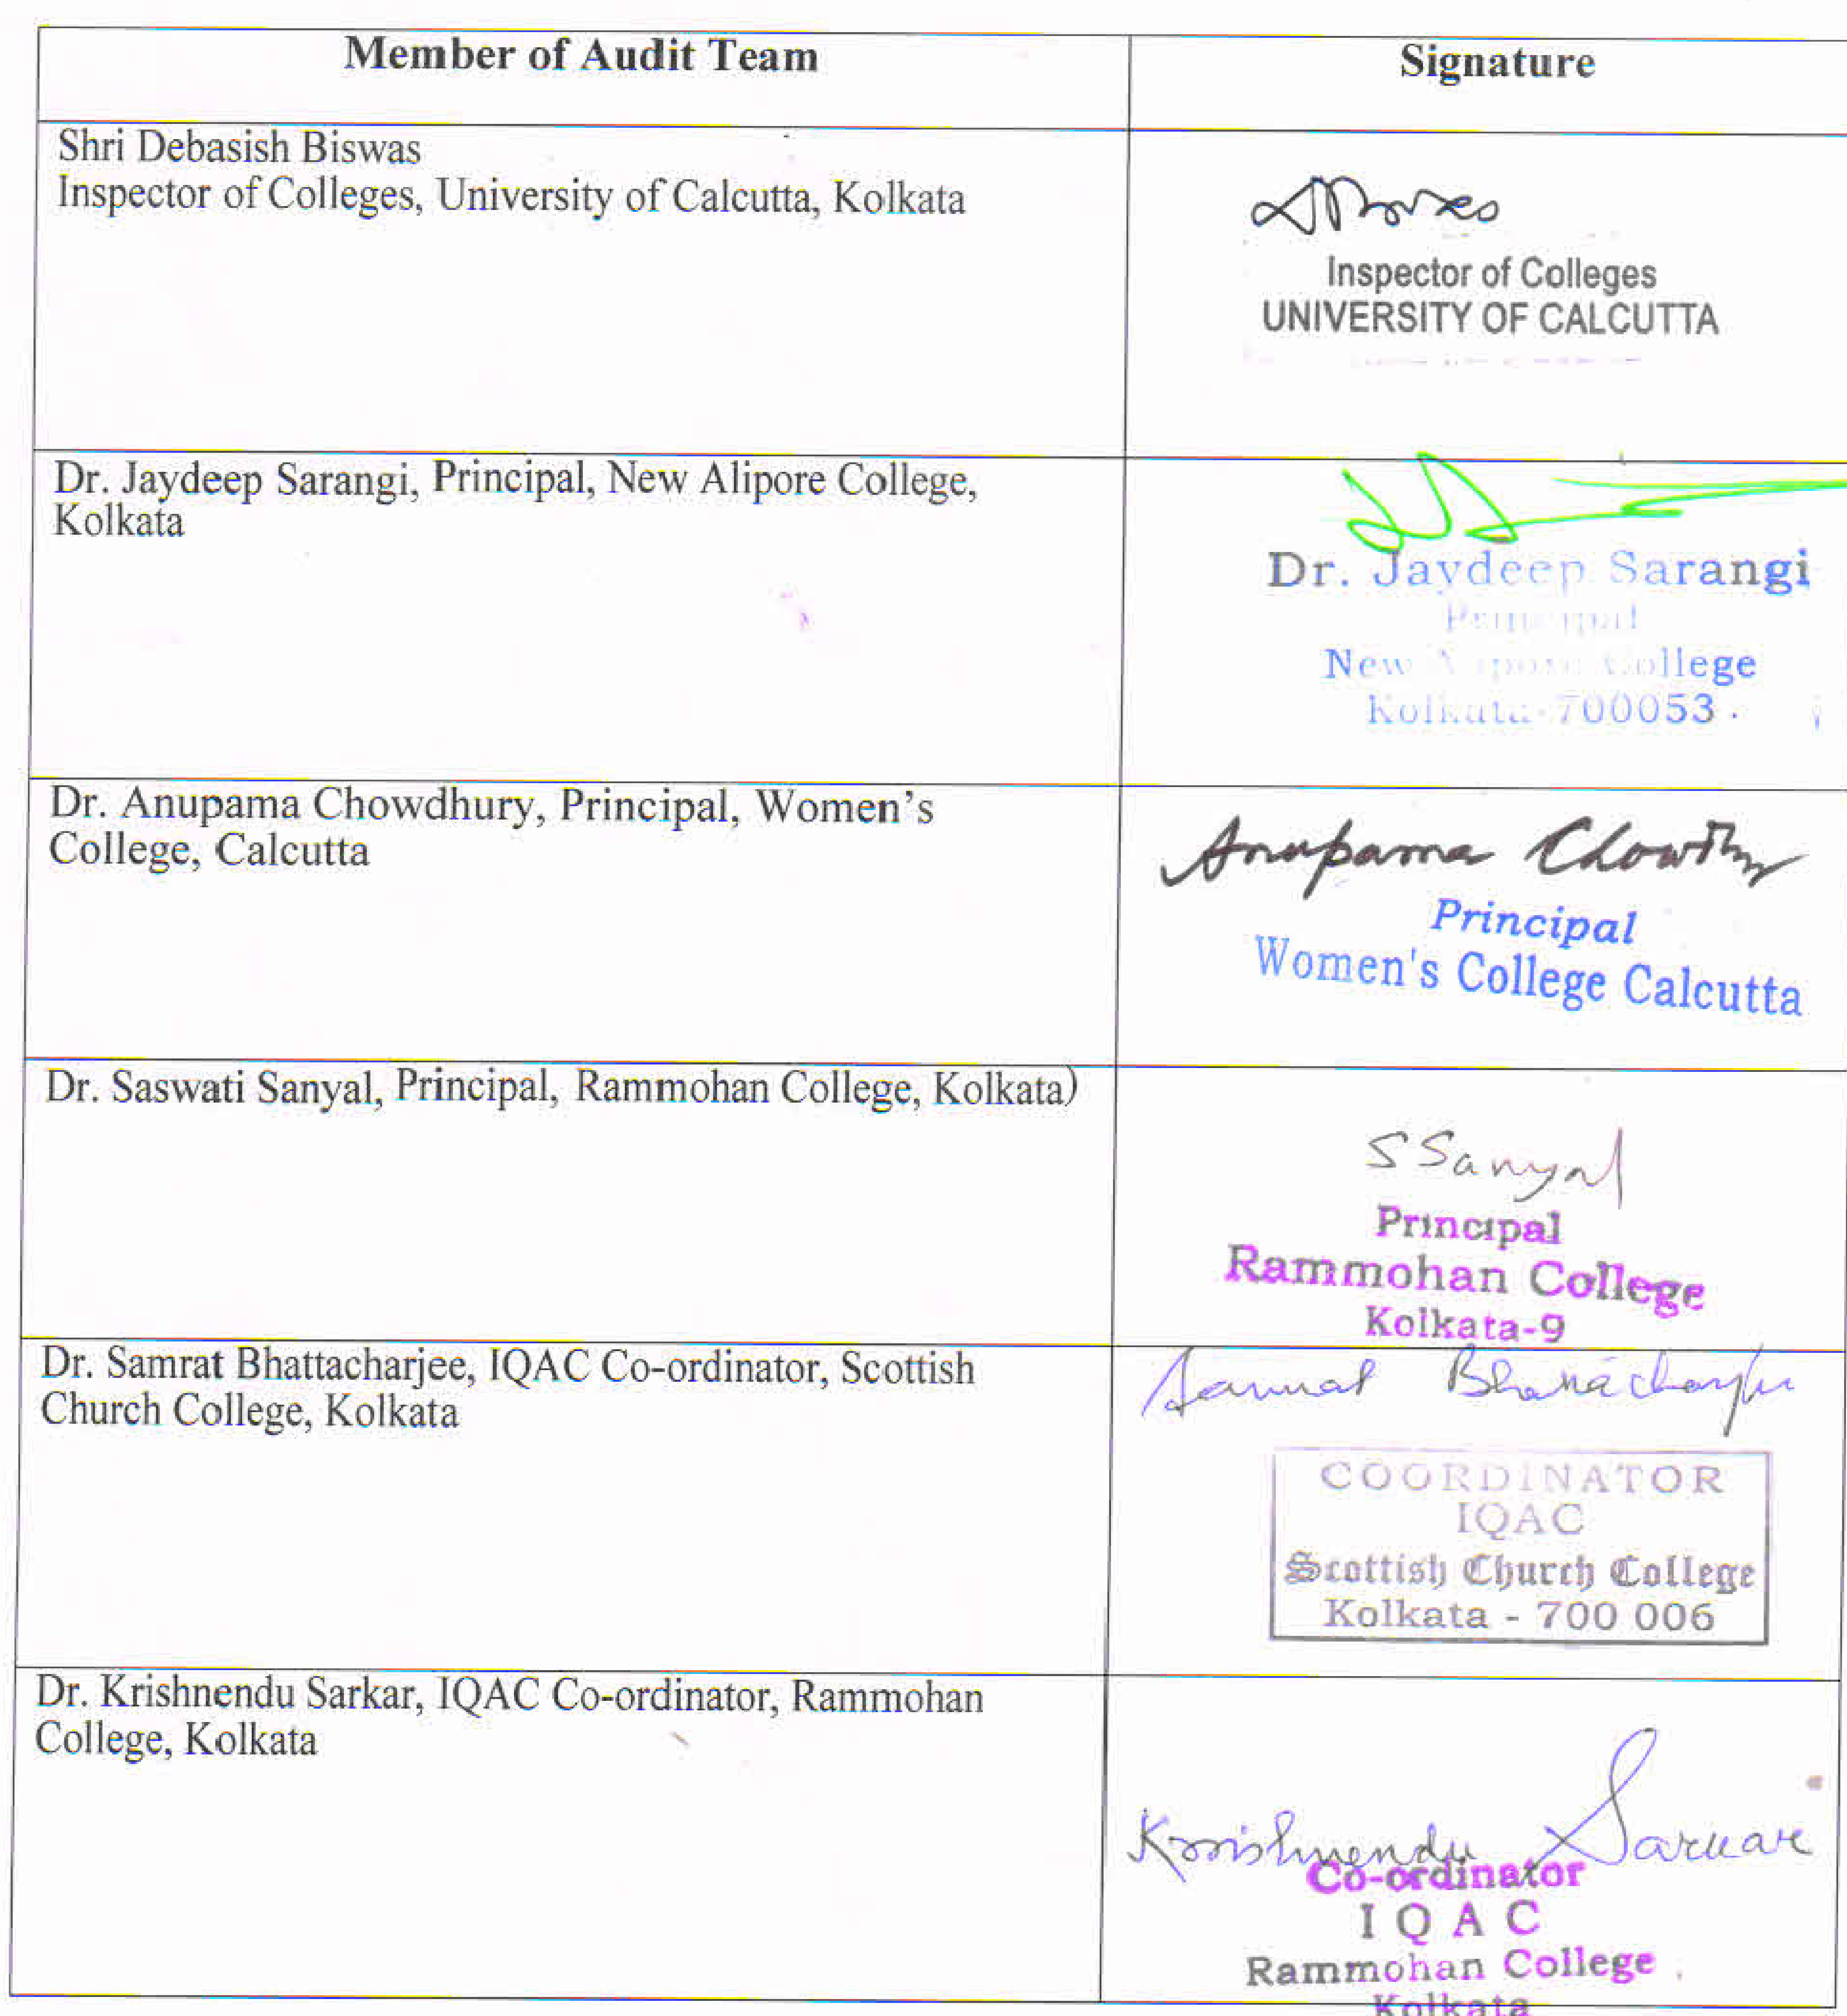 Member of Audit Team
Signature
Shri Debasish Biswas
Inspector of Colleges, University of Calcutta, Kolkata
Inspector of Colleges
UNIVERSITY OF CALCUTTA
Dr. Jaydeep Sarangi, Principal, New Alipore College,
Kolkata
Dr. Jaydeep Sarangi
Principal
New Alipore College
Kolkata-700053
Dr. Anupama Chowdhury, Principal, Women's
College, Calcutta
Anupama
Principal
Women's College Calcutta
Dr. Saswati Sanyal, Principal, Rammohan College, Kolkata)
S Sanyal
Principal
Rammohan College
Kolkata-9
Dr. Samrat Bhattacharjee, IQAC Co-ordinator, Scottish
Church College, Kolkata
Samrat Bhattacharjee
COORDINATOR
IQAC
Scottish Church College
Kolkata - 700 006
Dr. Krishnendu Sarkar, IQAC Co-ordinator, Rammohan
College, Kolkata
Krishnendu Sarkar
Co-ordinator
I Q A C
Rammohan College
Kolkata